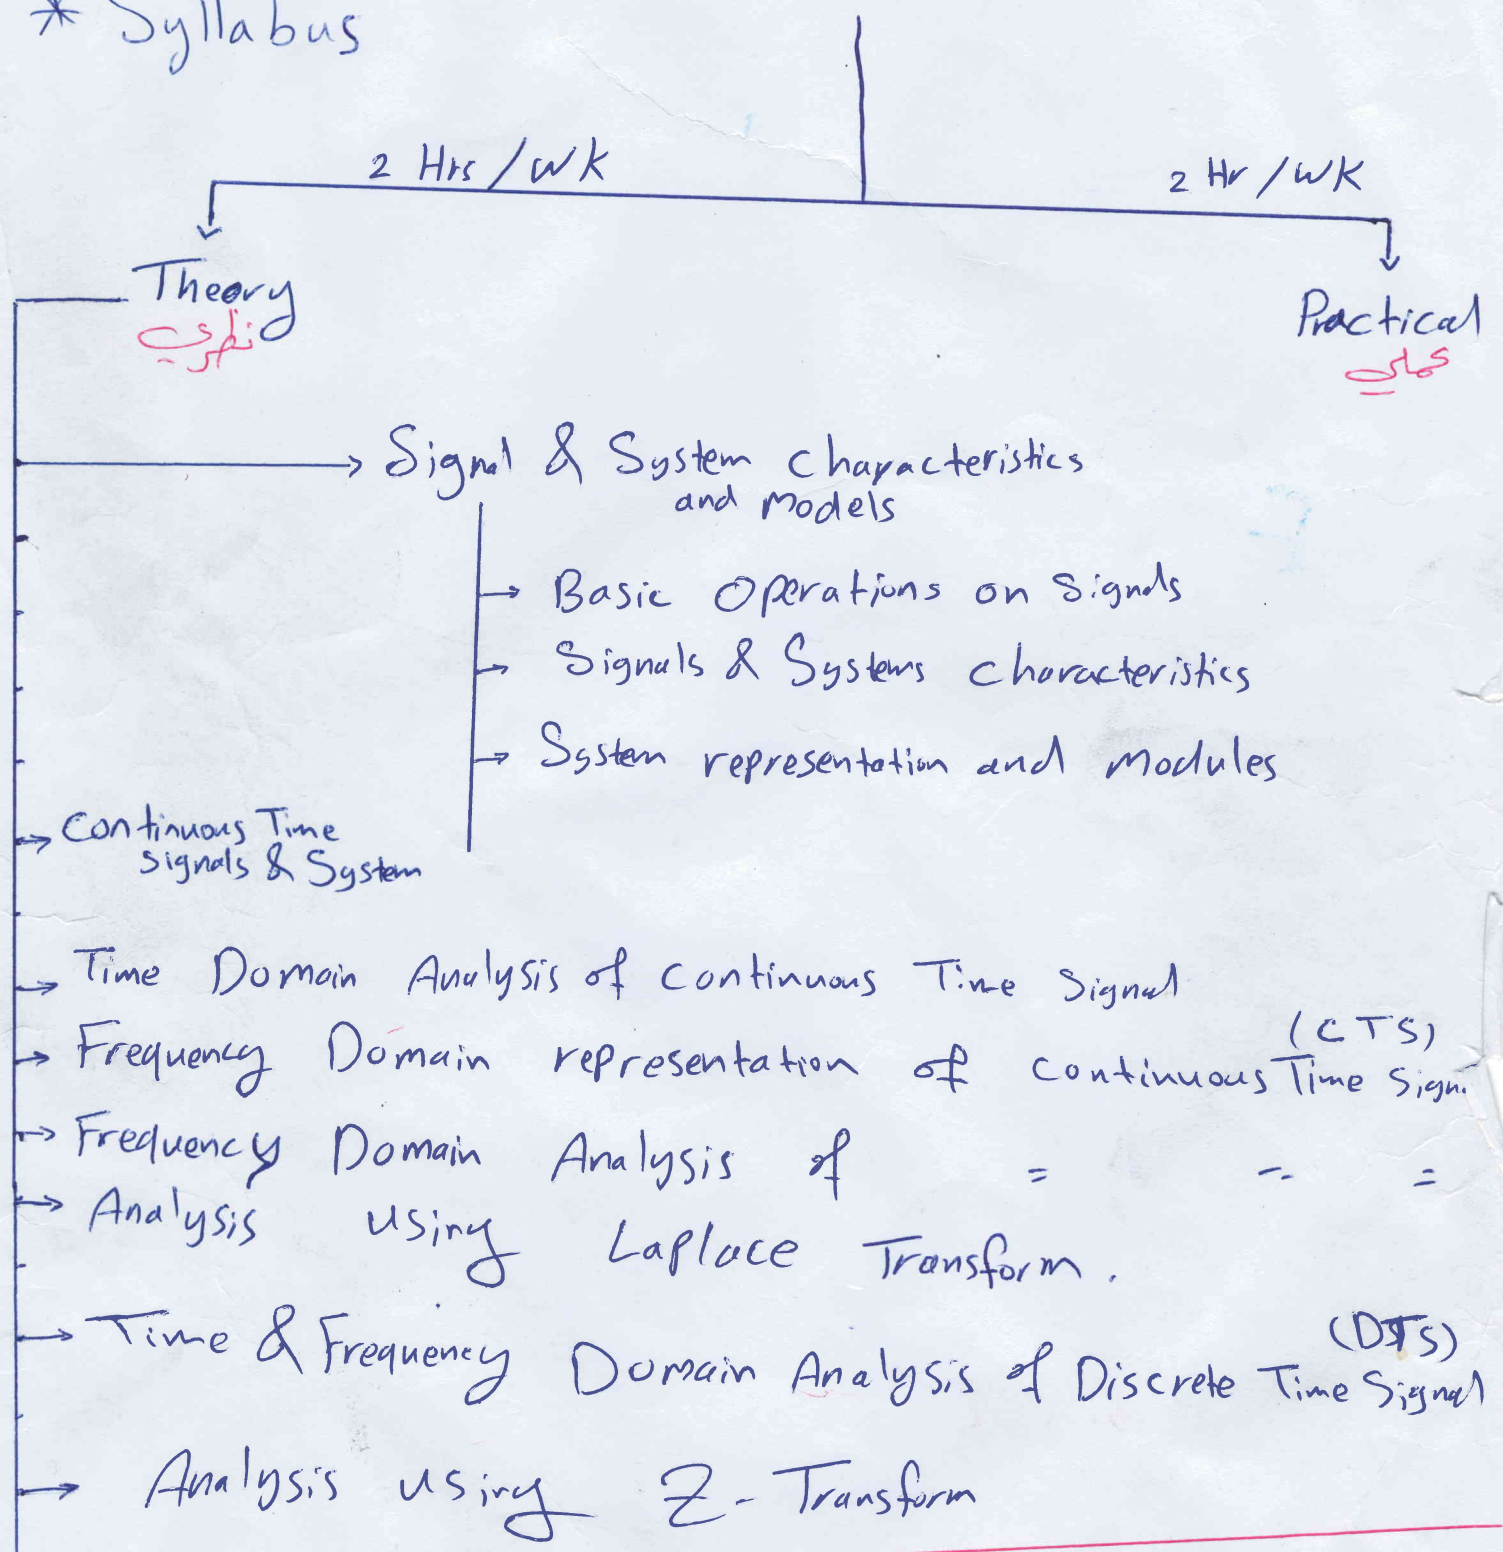 * Syllabus
2 Hrs / WK
2 Hr / WK
Theory
نظري
Practical
عملي
Signal & System characteristics
and Models
Basic Operations on Signals
Signals & Systems characteristics
System representation and Modules
Continuous Time
Signals & System
Time Domain Analysis of Continuous Time Signal
(CTS)
Frequency Domain representation of Continuous Time Sign.
Frequency Domain Analysis of = = =
Analysis using Laplace Transform.
(DTS)
Time & Frequency Domain Analysis of Discrete Time Signal
Analysis using Z-Transform